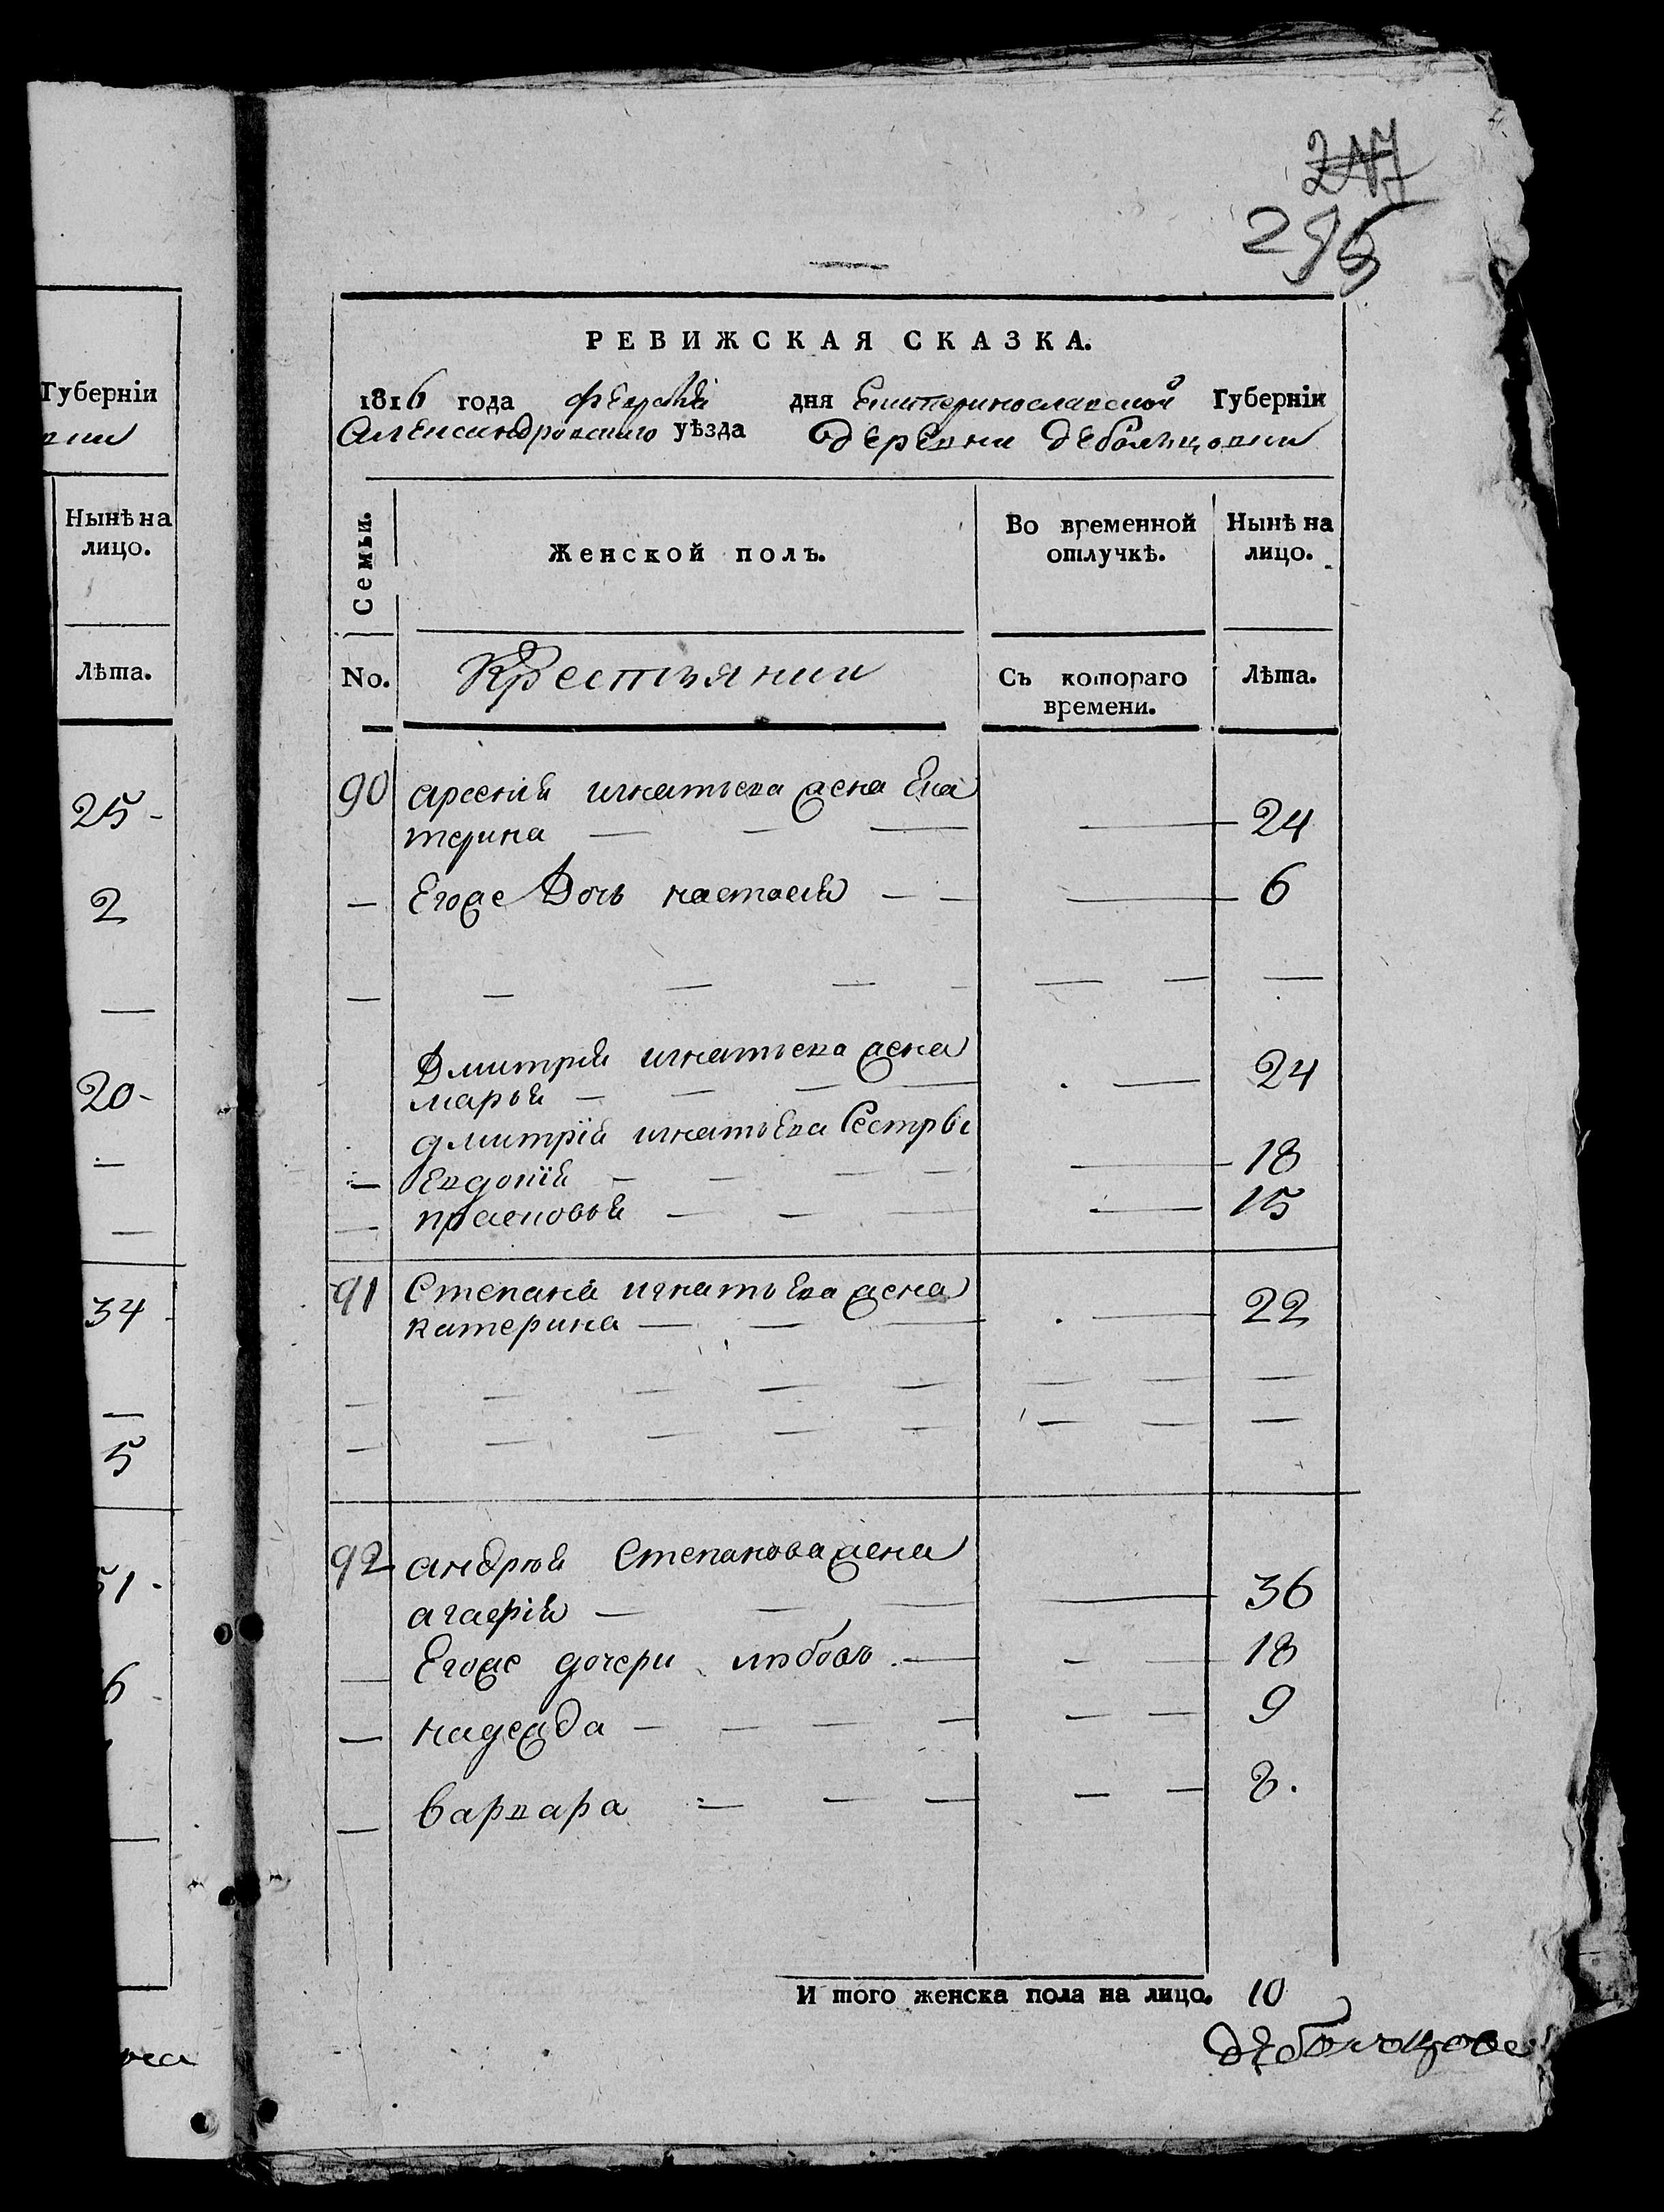 Губерніи
вки
Нынѣ на
лицо.
Лѣта.
25
2
20
34
5
51
6
247
295
РЕВИЖСКАЯ СКАЗКА.
1816 года февраля дня Екатеринославской Губерніи
Александровскаго уѣзда деревни дебальцовки
Семьи.
Женской полъ.
Во временной
отлучкѣ.
Нынѣ на
лицо.
No.
Крестьянии
Съ котораго
времени.
Лѣта.
90 арсенія игнатьева жена Ека
терина — — — — 24
— Егоже Дочь настасія — — — 6
Дмитрія игнатьева жена
марья — — — — — 24
дмитрія игнатьева Сестры
— Евдокія — — — — — 18
— прасковья — — — — 15
91 Степана игнатьева жена
катерина — — — — 22
92 андрея Степанова жена
агафія — — — — 36
— Егоже дочери любовь — — — 18
— надежда — — — — — — 9
— варвара — — — — — 8.
И того женска пола на лицо. 10